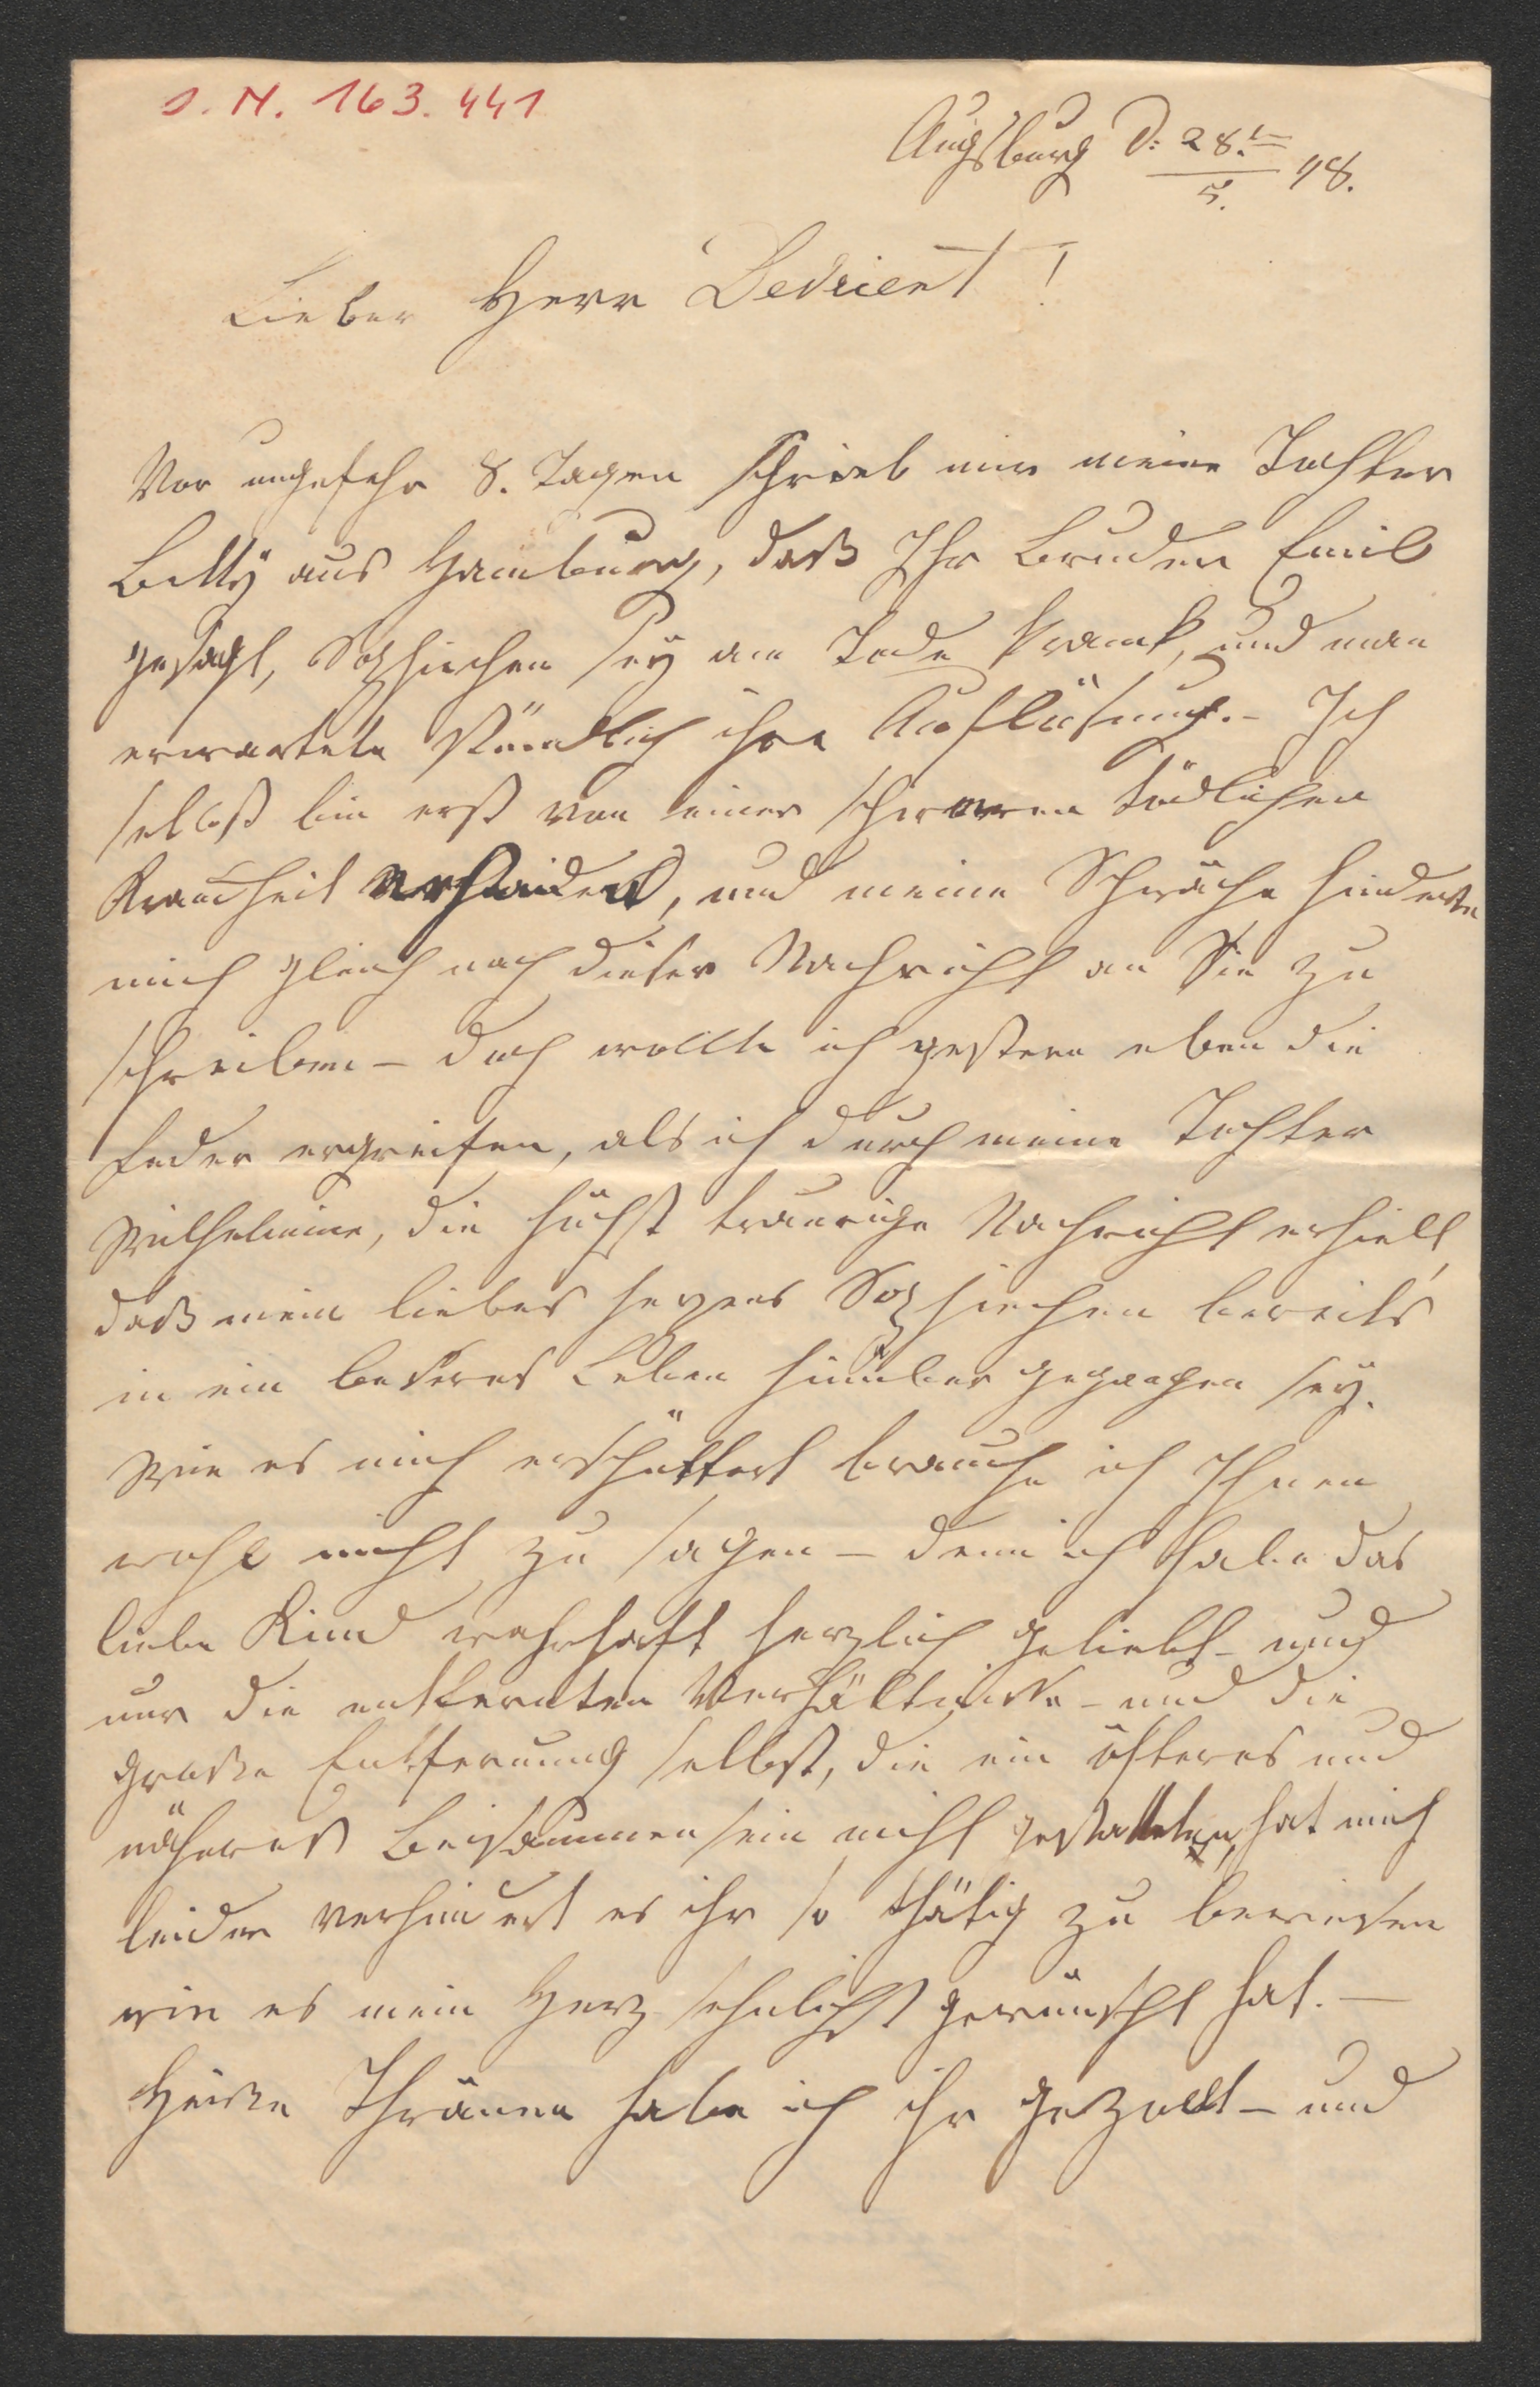 J. N. 163.441
Augsburg d: 28.t/5. 48.
Lieber Herr Devrient!
Vor ungefehr 8. Tagen schrieb mir meine Tochter
Betty aus Hamburg, daß Ihr Bruder Emil
gesagt, Sophiechen sey am Tode krank, und man
erwartete stündlich ihre Auflösung. - Ich
selbst bin erst von einer schweren tödlichen
Krankheit, und meine Schwäche hinderte
mich gleich nach dieser Nachricht an Sie zu
schreiben - doch wollte ich gestern eben die
Feder ergreifen, als ich durch meine Tochter
Wilhelmine, die höchst traurige Nachricht erhielt,
daß mein liebes herzens Sophiechen bereits
in ein besseres Leben hinüber gegangen sey.
Wie es mich erschüttert brauche ich Ihnen
wohl nicht zu sagen - denn ich habe das
liebe Kind wahrhaft herzlich geliebt - und
nur die entfernten Verhältnisse - und die
große Entfernung selbst, die ein öfteres und
näheres Beisammensein nicht gestatteten, hat mich
leider verhindert es ihr so thätig zu beweisen
wie es mein Herz sehnlichst gewünscht hat. —
Heiße Thränen habe ich ihr gezollt - und